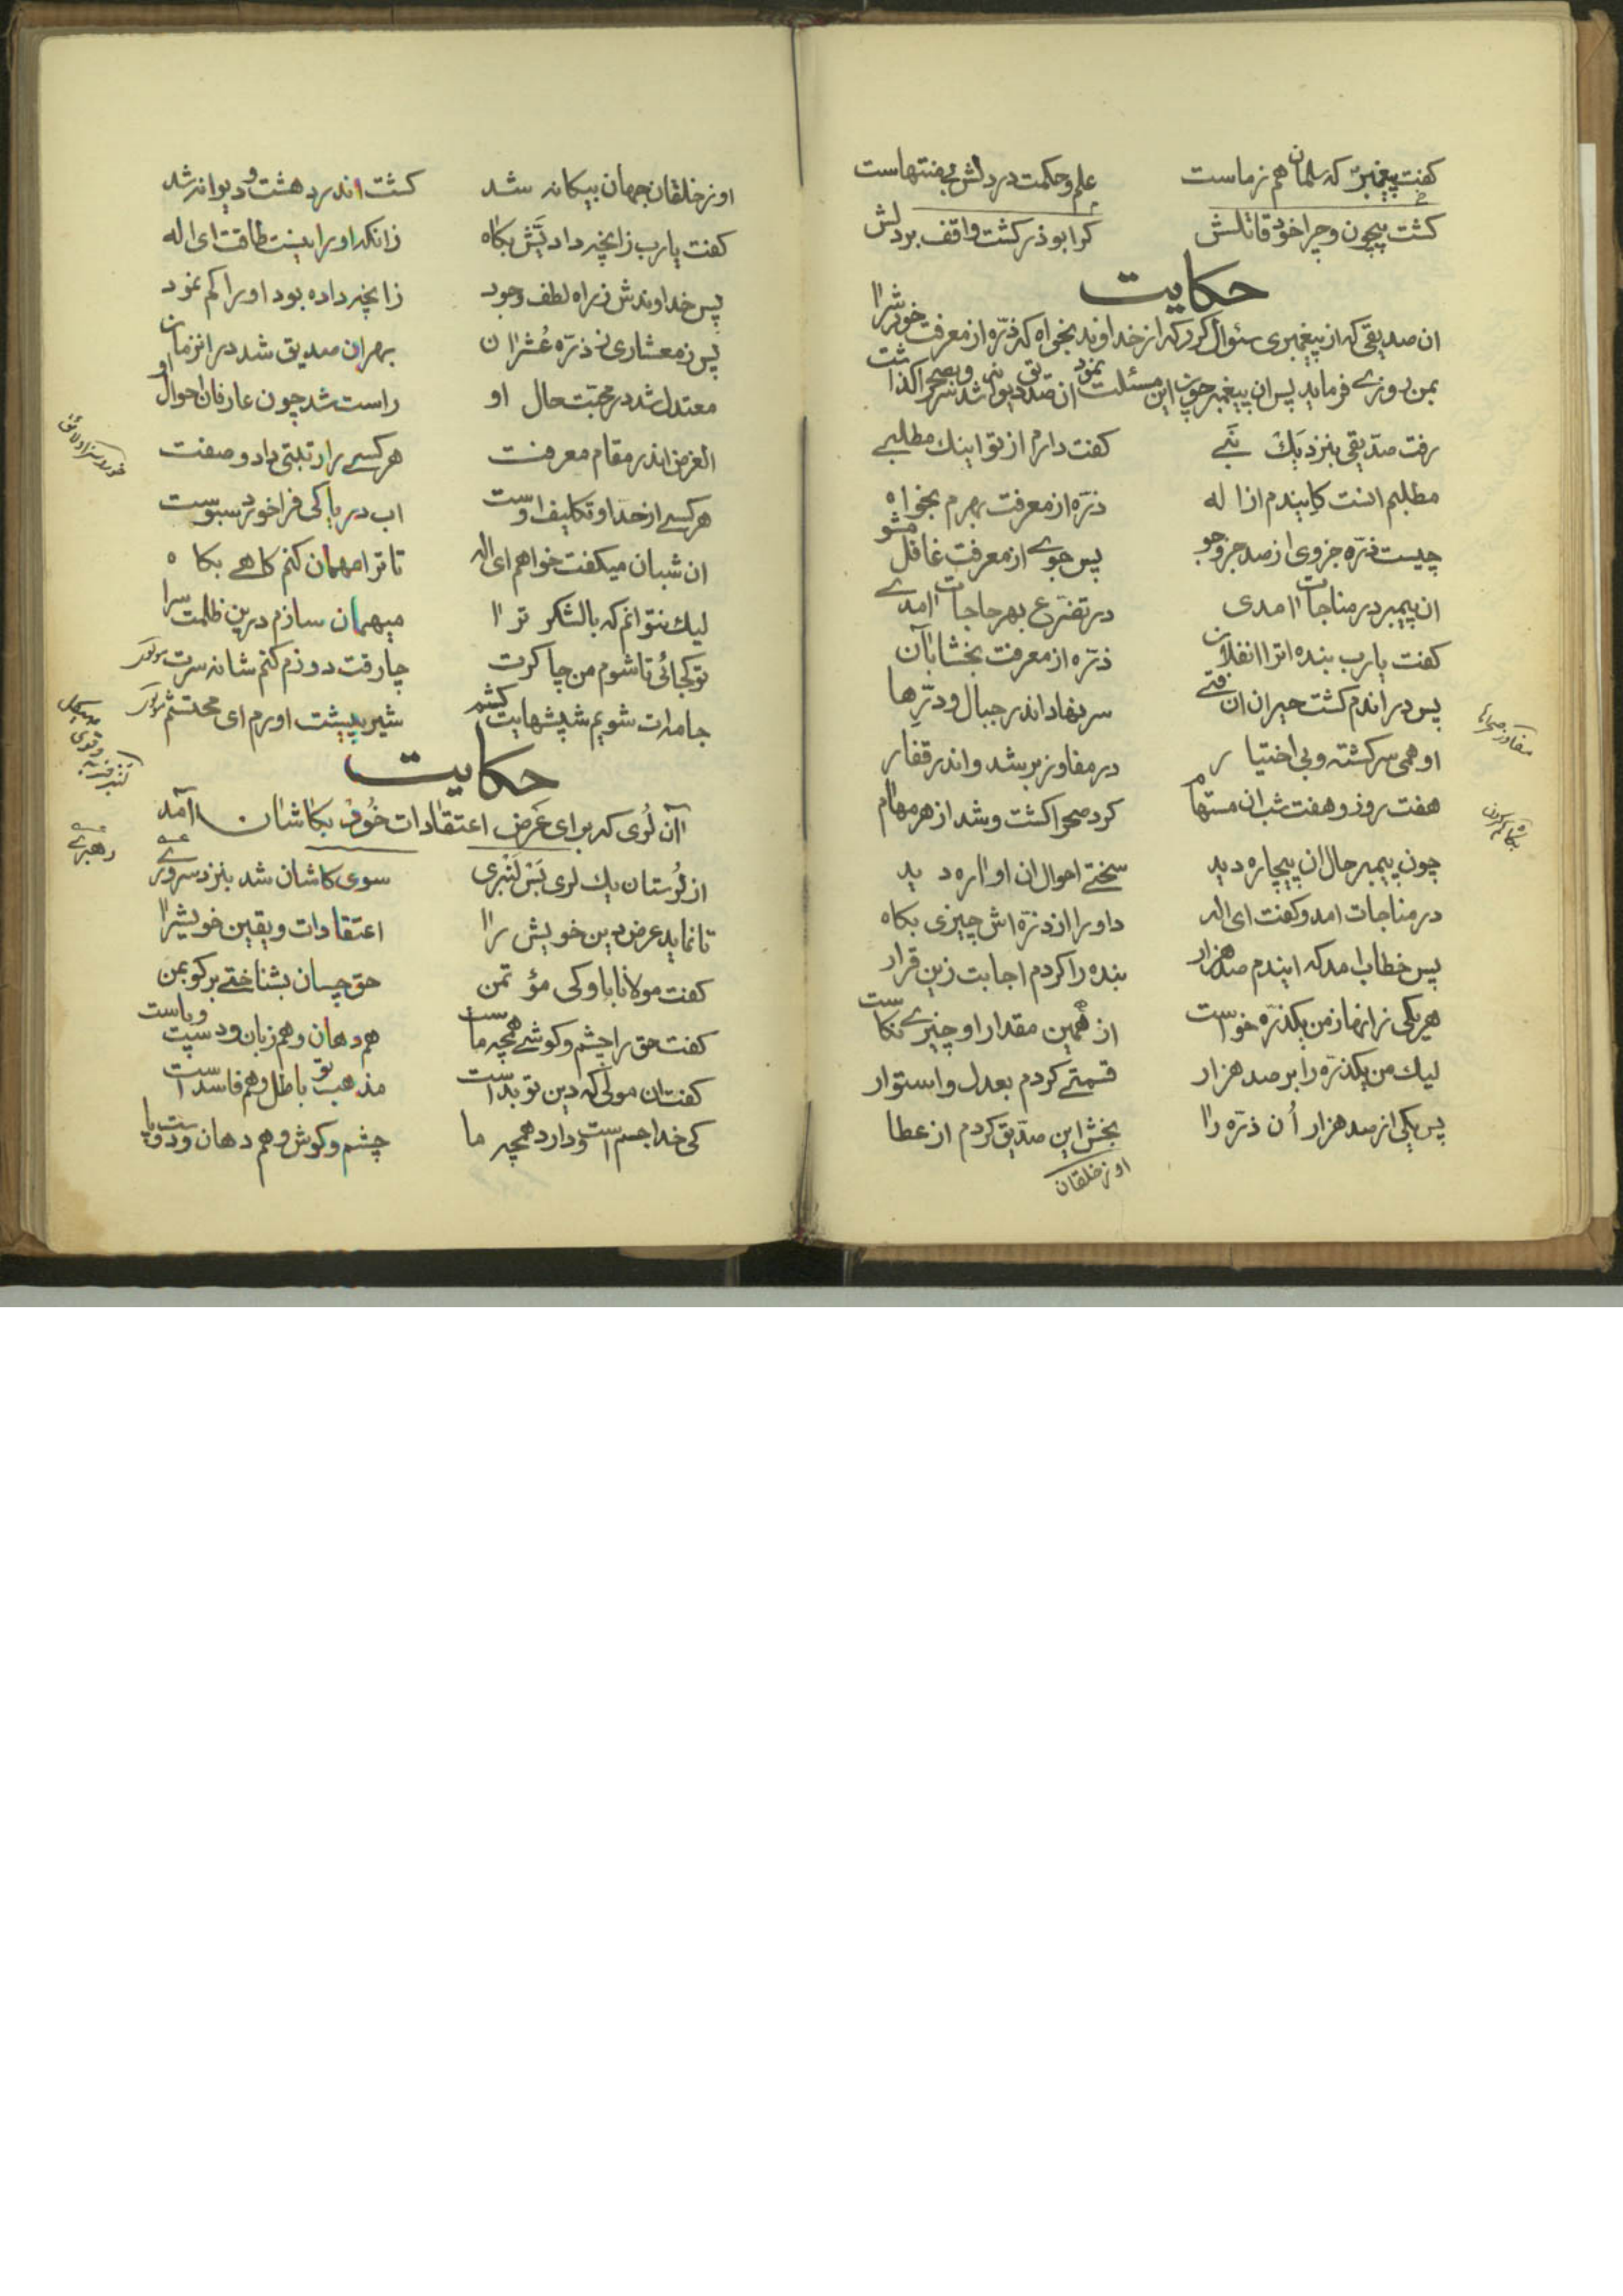 کفت پیغمبر که سلمان هم ز ماست علم و حکمت در دلش بی منتهاست
کشت بیچون و چرا خود قاتلش کر ابوذر کشت واقف بر دلش
حکایت
ان صدیقی که از پیغمبری سئوال کرد که از خداوند بخواه که ذرّه از معرفت خویش را
بمن روزے فرماید پس ان پیغمبر چون این مسئلت نمود ان صدیق دیوانه شد و سر بصحرا کذاشت
رفت صدّیقی بنزد یک نبے کفت دارم از تو اینک مطلبے
مطلبم انست کایندم از اله ذرّه از معرفت بهرم بخواه
چیست ذرّه جزوی از صد جزو جو پس جوے از معرفت غافل مشو
ان پیمبر در مناجات امدی در تضرّع بهر حاجات امدے
کفت یارب بنده ات را انفلان ذرّه از معرفت بخشا بآن
پس در اندم کشت حیران ان فتے سر نهاد اندر جبال و درّها
او همی سرکشته و بی اختیار در مفاوز بر شد و اندر قفار
هفت روز و هفت شب ان مستهام کرد صحرا کشت و شد از هر مهام
چون پیمبر حال ان بیچاره دید سختے احوال ان اواره دید
در مناجات امد و کفت ای اله داورا از ذرّه اش چیزی بکاه
پس خطاب امد که ایندم صد هزار بنده را کردم اجابت زین قرار
هر یکی زانها ز من یکذرّه خواست از همین مقدار او چیزے نکاست
لیک من یکذرّه را بر صد هزار قسمتے کردم بعدل و استوار
پس یکی از صد هزار اُن ذرّه را بخش این صدّیق کردم از عطا
او ز خلقان
مفاوز صحراها
او ز خلقان جهان بیکانه شد کشت اندر دهشت و دیوانه شد
کفت یارب زانچه دادیَش بکاه زانکه او را نیست طاقت ای اله
پس خداوندش ز راه لطف و جود زانچه داده بود او را کم نمود
پس ز معشاری ز ذرّه عُشر ان بهر ان صدیق شد در انزمان
معتدل شد در محبت حال او راست شد چون عارفان احوال او
الغرض اندر مقام معرفت هر کسے را رتبتی داد و صفت
هر کسے از حدّ او تکلیف اوست اب دریا کی فراخورد سبوست
ان شبان میکفت خواهم ای اله تا ترا مهمان کنم کاهے بکاه
لیک نتوانم که با لشکر ترا میهمان سازم درین ظلمت سرا
تو کجائی تا شوم من چاکرت چارقت دوزم کنم شانه سرت
جامه ات شویم شپشهایت کشم شیر پیشت اورم ای محتشم
حکایت
آن لُری که برای عَرض اعتقادات خُود بکاشان آمد
از لُرستان یک لری بَس لَنبری سوی کاشان شد بنزد سرورے
تا نماید عرض دین خویش را اعتقادات و یقین خویش را
کفت مولانا باو کی مؤتمن حق چسان بشناختے برکو بمن
کفت حق را چشم و کوشے همچه ماست هم دهان و هم زبان و دست و پاست
کفتش ان مولی که دین تو بد است مذهب تو باطل و هم فاسد است
کی خدا جسم است و دارد همچه ما چشم و کوش و هم دهان و دست و پا